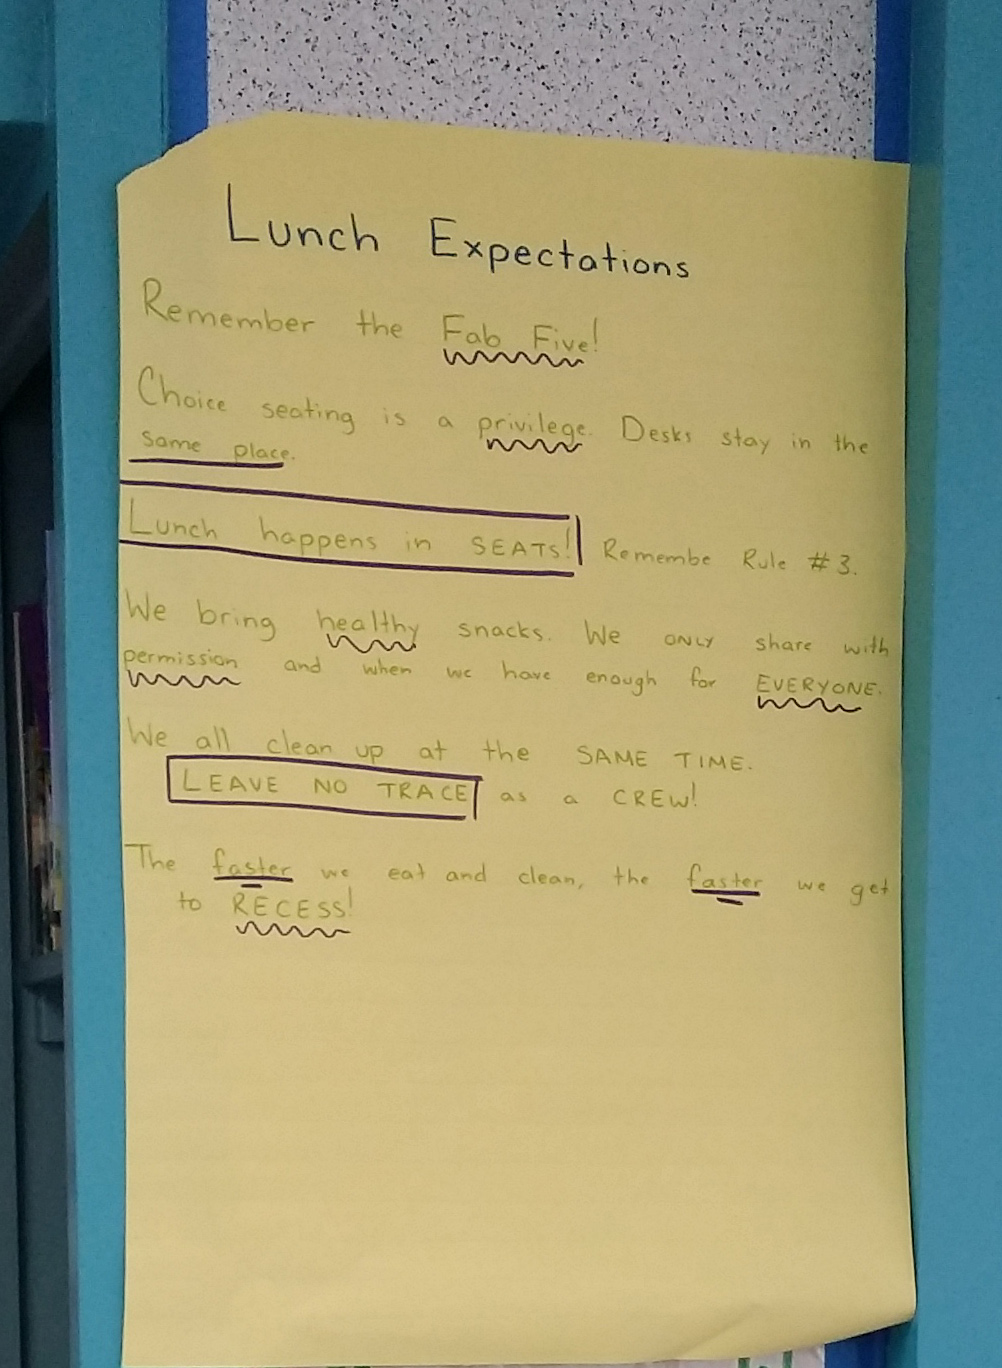 Lunch Expectations
Remember the Fab Five!
Choice seating is a privilege. Desks stay in the
same place.
Lunch happens in SEATS! Remembe Rule #3.
We bring healthy snacks. We ONLY share with
permission and when we have enough for EVERYONE.
We all clean up at the SAME TIME.
LEAVE NO TRACE as a CREW!
The faster we eat and clean, the faster we get
to RECESS!